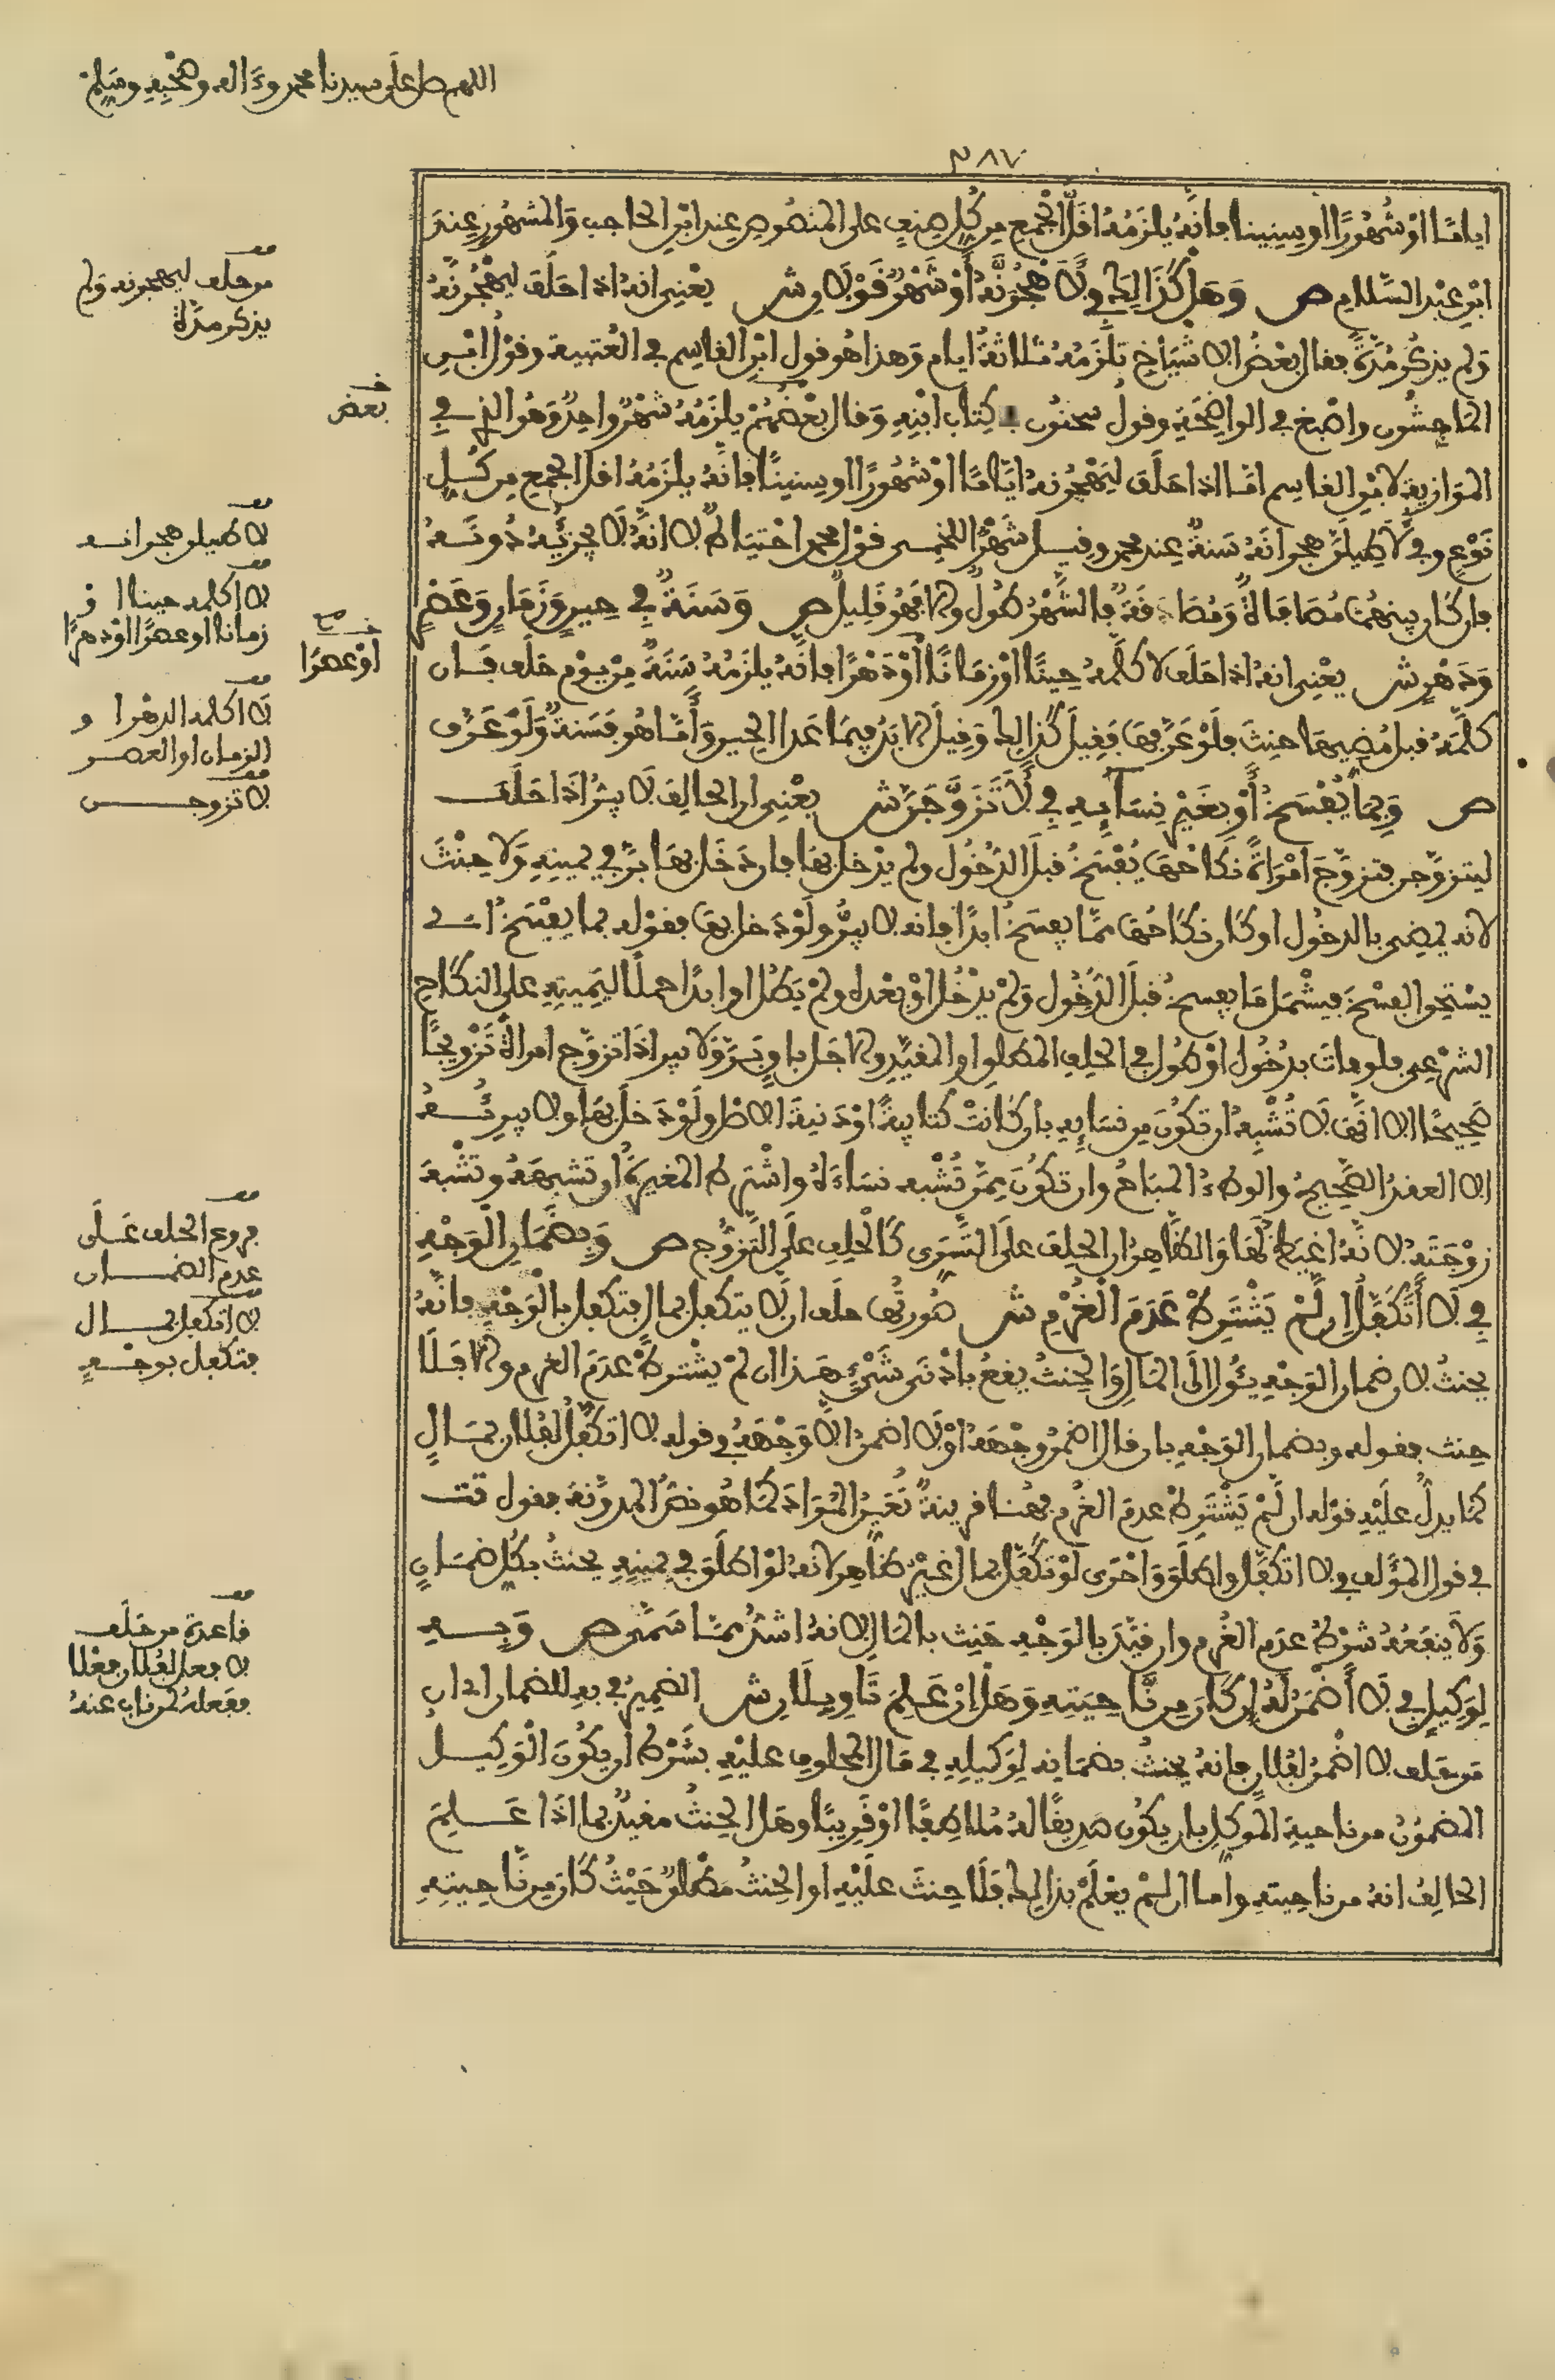 اللهم صل على سيدنا محمد وءاله وصحبه وسلم
٣٨٧
اياما او شهورا او سنينا فانه يلزمه اقل الجمع من كل صنف على المنصوص عند ابن الحاجب والمشهور عند
ابن عبد السلام ص وهل كذالك في لاهجرنه او شهر قولان ش يعني انه اذا حلف ليهجرنه
ولم يذكر مدة فقال بعض الاشياخ تلزمه ثلاثة ايام وهذا هو قول ابن القاسم في العتبية وقول ابن
الماجشون واصبغ في الواضحة وقول سحنون في كتاب ابنه وقال بعضهم يلزمه شهر واحد وهو الذي في
الموازية لابن القاسم اما اذا حلف ليهجرنه اياما او شهورا او سنينا فانه يلزمه اقل الجمع من كل
نوع وفي لاطيلن هجرانه سنة عند محمد وقيل شهر اللخمي قول محمد احتياط لا انه لا يجزيه دونه
فان كان بينهما مصافاة ومصادقة فالشهر طول والا فهو قليل ص وسنة في حين وزمان وعصر
ودهر ش يعني انه اذا حلف لا كلمه حينا او زمانا او دهرا فانه يلزمه سنة من يوم حلف فان
كلمه قبل مضيها حنث فلو عرفها فقيل كذالك وقيل الابد فيما عدا الحين واما هو فسنة ولو عرف
ص وبما يفسخ او بغير نسايه في لاتزوجن ش يعني ان الحالف لا يبر اذا حلف
ليتزوجن فتزوج امراة نكاحها يفسخ قبل الدخول ولم يدخل بها فان دخل بها بر في يمينه ولا حنث
لانه يمضي بالدخول او كان نكاحها مما يفسخ ابدا فانه لا يبر ولو دخل بها فقوله بما يفسخ اي
يستحق الفسخ فيشمل ما يفسخ قبل الدخول ولم يدخل او بعده ولم يطل او ابدا حملا ليمينه على النكاح
الشرعي فلو فات بدخول او طول في الحلف المطلق او المقيد والاجل باق بر ولا يبر اذا تزوج امراة تزويجا
صحيحا الا انها لا تشبه ان تكون من نسايه بان كانت كتابية او دنية الاصل ولو دخل بها ولا يبريه
الا العقد الصحيح والوطء المباح وان تكون ممن تشبه نساءه واشترط المغيرة ان تشبهه وتشبه
زوجته لانه اغيظ لها والظاهر ان الحلف على التسري كالحلف على التزوج ص وبضمان الوجه
في لا اتكفل ان لم يشترط عدم الغرم ش صورتها حلف ان لا يتكفل بمال فتكفل بالوجه فانه
يحنث لان ضمان الوجه يئول الى المال والحنث يقع بادنى شيء هذا ان لم يشترط عدم الغرم والا فلا
حنث فقوله وبضمان الوجه بان قال اضمن وجهه او لا اضمن الا وجهه في قوله لا اتكفل لفلان بمال
كما يدل عليه قوله ان لم يشترط عدم الغرم فهنا قرينة تعين المراد كما هو نص المدونة فقول تت
في قول المؤلف في لا اتكفل واطلق واحرى لو تكفل بمال غير ظاهر لانه لو اطلق في يمينه يحنث بكل ضمان
ولا ينفعه شرط عدم الغرم وان قيد بالوجه حنث بالمال لانه اشد مما سمى ص وبه
لوكيل في لا اضمن له ان كان من ناحيته وهل ان علم تاويلان ش الضمير في به للضمان اي ان
من حلف لا اضمن لفلان فانه يحنث بضمانه لوكيله في مال المحلوف عليه بشرط ان يكون الوكيل
المضمون من ناحية الموكل بان يكون صديقا له ملاطفا او قريبا وهل الحنث مقيد بما اذا علم
الحالف انه من ناحيته واما ان لم يعلم بذالك فلا حنث عليه او الحنث مطلق حيث كان من ناحيته
من حلف ليهجرنه ولم
يذكر مدة
بعض
لاطيلن هجرانه
لا اكلمه حينا او
زمانا او عصرا او دهرا
او عصرا
لا اكلمه الدهر او
الزمان او العصر
لاتزوجن
فروع الحلف على
عدم الضمان
لا اتكفل بمال
فتكفل بوجه
قاعدة من حلف
لا فعل لفلان فعلا
ففعله لمن ناب عنه